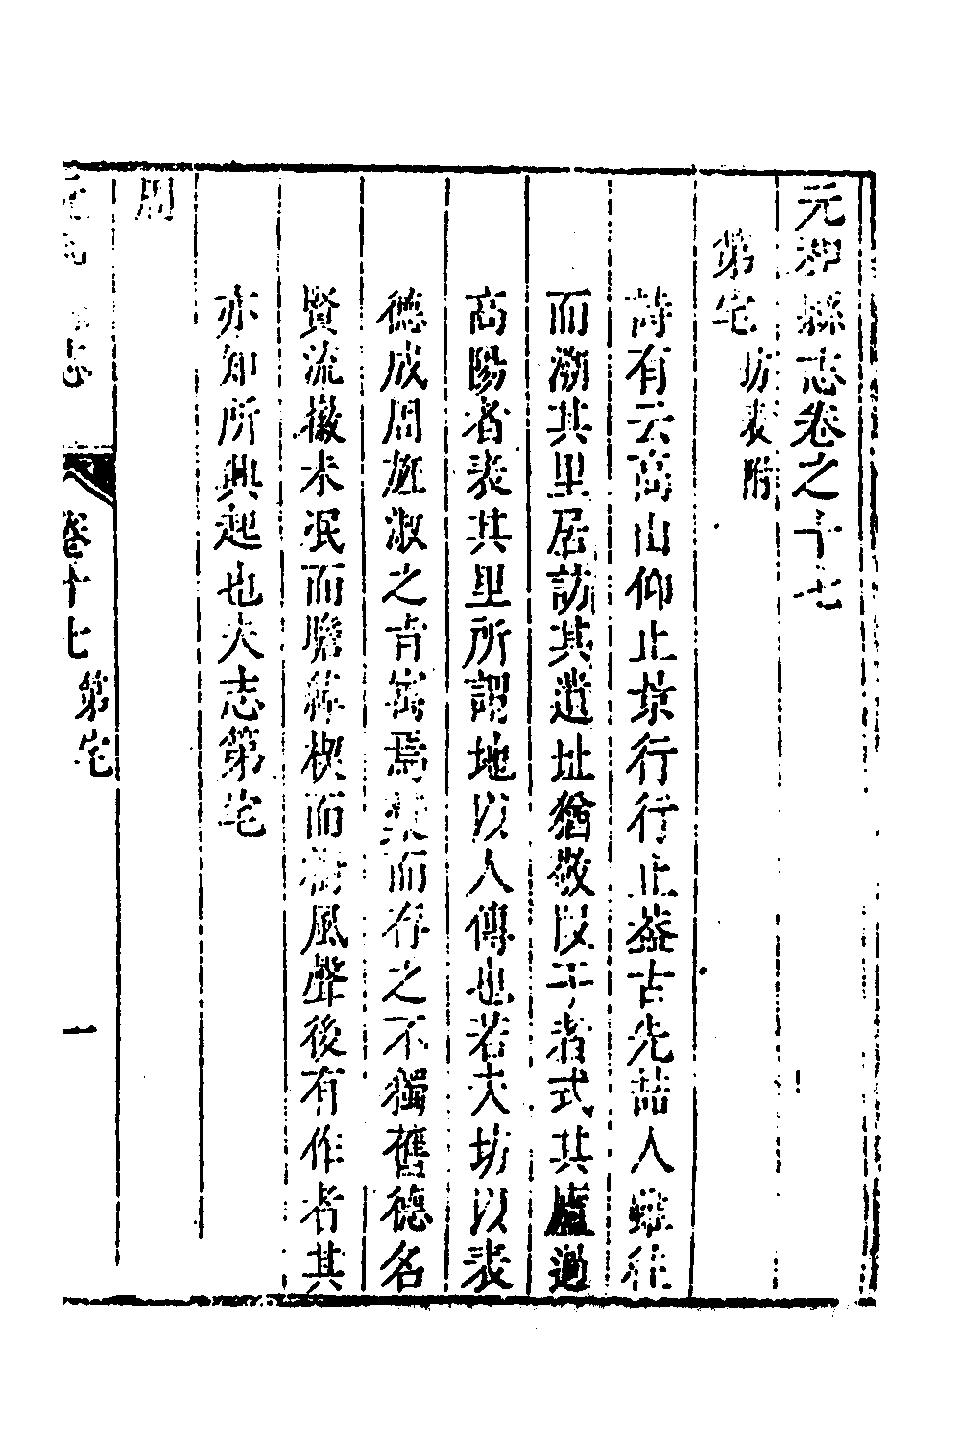 元和縣志卷之十七
第宅 坊表附
詩有云高山仰止景行行止葢古先喆人雖往
而溯其里居訪其遺址猶敬以于者式其廬過
高陽者表其里所謂地以人傳也若夫坊以表
德成周旌淑之旨寓焉棐而存之不獨舊德名
賢流徽未泯而瞻綽楔而樹風聲後有作者其
亦知所興起也夫志第宅
周
元和 志 卷十七 第宅 一